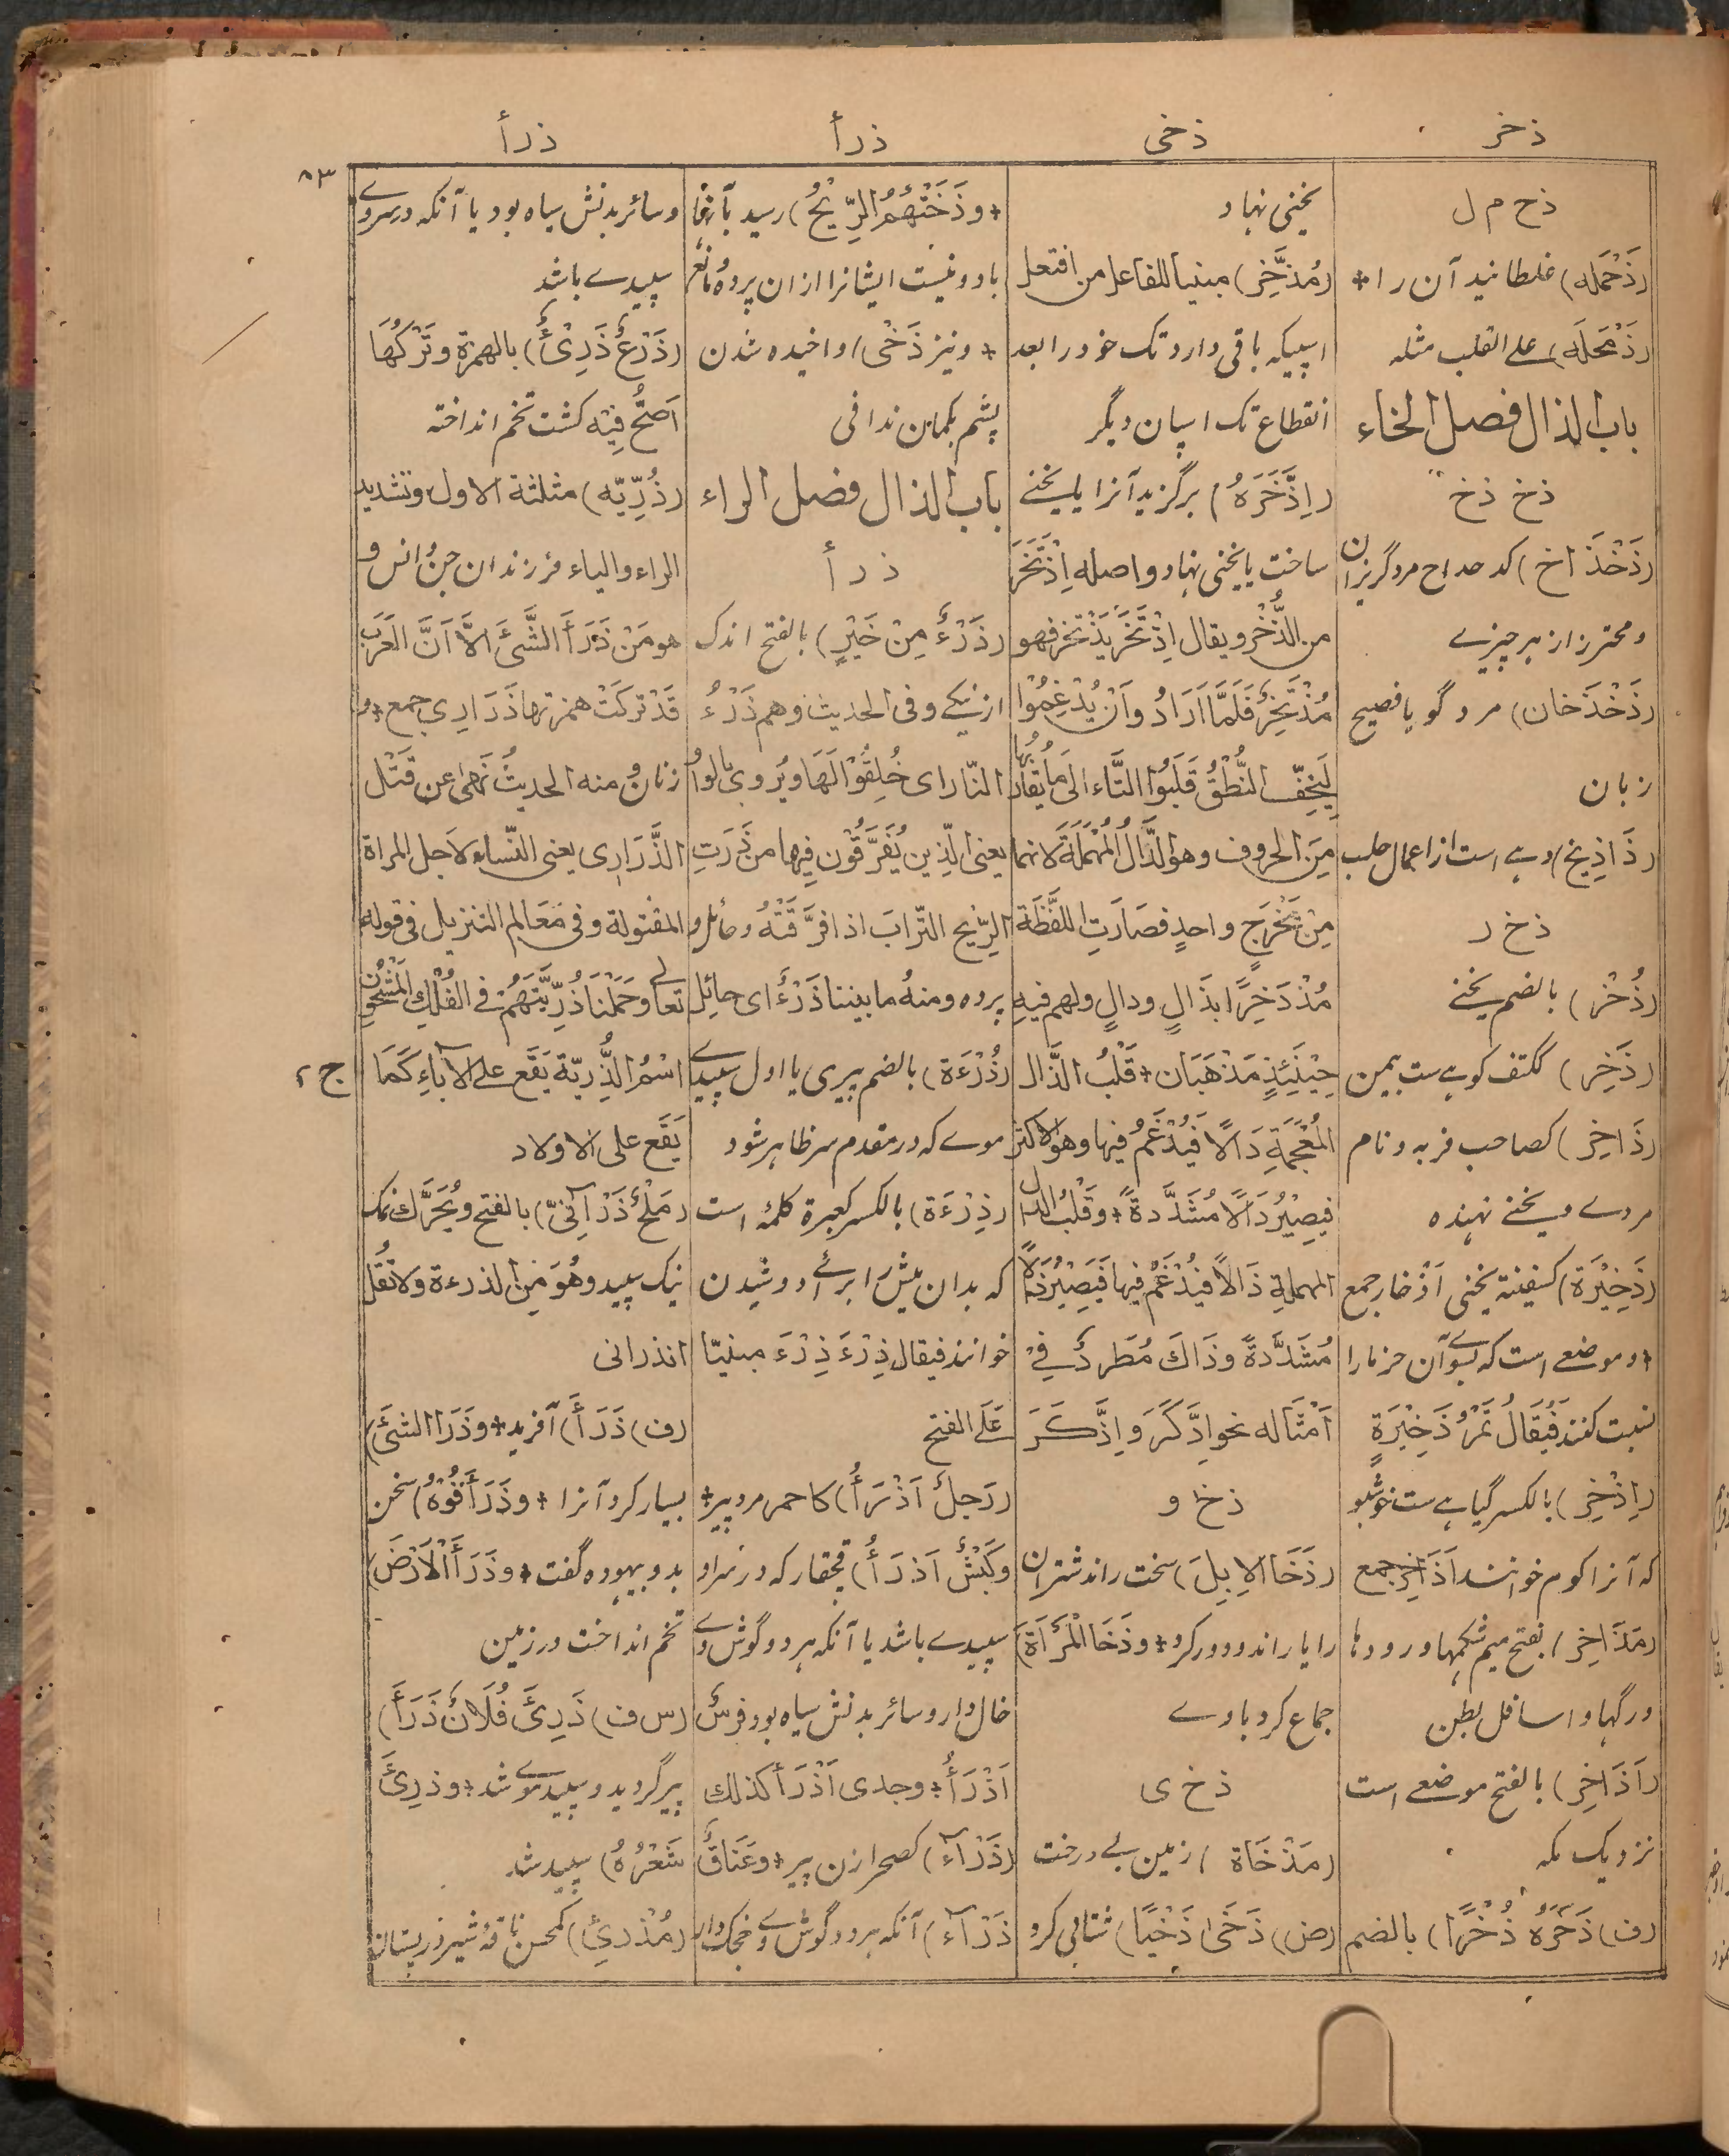 ذخر
ذخی
ذرأ
ذرأ
۸۳
ذ ح م ل
(ذَحْمَلَه) غلطانید آن را +
(ذَمْحَلَه) علے القلب مثلہ
باب الذال فصل الخاء
ذ خ ذ خ
(ذَخْذَاخ) کد حداح مرد گریزان
و محترز از ہر چیزے
(ذَخْذَخان) مرد گویا فصیح
زبان
(ذَاذِیخ) دہے است از اعمال حلب
ذ خ ر
(ذُخْر) بالضم یخنے
(ذَخِر) ککتف کوہے ست بیمن
(ذَاخِر) کصاحب فربہ و نام
مردے و یخنے نہندہ
(ذَخِیْرَة) کسفینتہ یخنی اَذْخار جمع
+ و موضعے است کہ بسوے آن خرما را
نسبت کنند فَیُقَالُ تَمْرُ ذَخِیْرَةٍ
(اِذْخِر) بالکسر گیاہے ست خوشبو
کہ آنرا کوم خوانند اَذَاخِر جمع
(مَذَاخِر) بفتح میم شکمہا و رودہا
و رگہا و اسافل بطن
(اَذَاخِر) بالفتح موضعے است
نزدیک مکہ
(ف) ذَخَرَهُ ذُخْرًا) بالضم
یخنی نہاد
(مُذَّخِر) مبنیا للفاعل من افتعل
اسپیکہ باقی دارد تک خود را بعد
انقطاع تک اسپان دیگر
(اِذَّخَرَهُ) برگزید آنرا یا یخنے
ساخت یا یخنی نہاد و اصلہ اِذْتَخَرَ
من الذُّخْر و یقال اِذْتَخَرَ یَذْتَخِر فهو
مُذْتَخِرٌ فَلَمَّا اَرَادُ وا اَنْ یُدْغِمُوْا
لِیَخِفَّ النُّطْقُ قَلَبُوْا التَّاء الیٰ مَا یُقَارِبُهَا
مِنَ الحروف وهو الدَّالُ الْمُهْمَلَةُ لانهما
مِنْ مَخْرَجٍ واحدٍ فصَارَتِ اللَّفْظَةُ
مُذْدَخِرًا بذَالٍ ودالٍ ولهم فیهِ
حِیْنَئِذٍ مَذْهَبَان + قَلْبُ الذَّال
الْمُعْجَمَةِ دَالًا فَیُدْغَمُ فیها وهو الاکثر
فیصِیْرُ دَالًا مُشَدَّدةً + وقَلْبُ الدال
المهملةِ ذَالًا فیُدْغَمُ فیها فَیَصِیْرُ ذَالًا
مُشَدَّدةً وذَاكَ مُطَّرِدٌ فِیْ
اَمْثَاله نحو اِدَّکَرَ وَ اِذَّکَرَ
ذ خ و
(ذَخَا الاِبِلَ) سخت راند شتران
را یا راند و دور کرد + و ذَخَا الْمَرْأَةَ)
جماع کرد با وے
ذ خ ی
(مَذْخَاة) زمین بے درخت
(ض) ذَخَیٰ ذَخْیًا) شتابی کرد
+ وذَخَتْهُمُ الرِّیْحُ) رسید بآنہا
باد و نیست ایشانرا ازان پردہ مانع
+ و نیز ذَخْی) واخیدہ شدن
پشم بکمان ندافی
باب الذال فصل الراء
ذ ر أ
(ذَرْءٌ مِنْ خَیْرٍ) بالفتح اندک
از نیکے وفی الحدیث وهم ذَرْءُ
النّار ای خُلِقُوْا لَهَا ویُروی بالواو
یعنی الّذین یُفَرَّقُوْن فِیها من ذَرَتِ
الرِّیح التّرابَ اذا فرَّقَتْهُ وحائل و
پردہ ومنهُ ما بیننا ذَرْءٌ ای حائِل
(ذُرْءَة) بالضم پیری یا اول سپیدے
موے کہ در مقدم سر ظاہر شود
(ذِرْءَة) بالکسر کعبرة کلمہ است
کہ بدان میش را براے دوشیدن
خوانند فیقال ذِرْءَ ذِرْءَ مبنیًا
عَلَے الفتح
(رَجلٌ اَذْرَأُ) کاحمر مرد پیر +
وکَبْشٌ اَذرَأُ) قچقار کہ در سر او
سپیدے باشد یا آنکہ ہر دو گوش وے
خال دار و سائر بدنش سیاہ بود و فرسٌ
اَذْرَأُ + وجدی اَذْرَأ کذلك
(ذَرْآءُ) کصحرا زن پیر + وعَنَاقٌ
ذَرْآء) آنکہ ہر دو گوش وے خجک دار
و سائر بدنش سیاہ بود یا آنکہ در سر وے
سپیدے باشد
(ذَرْعٌ ذَرِیْءٌ) بالهمزة وتَرْکُهَا
اَصَحُّ فِیْهِ کشت تخم انداختہ
(ذُرِّیّه) مثلثة الاول وتشدید
الراء والیاء فرزندان جن و انس و
هو مَنْ ذَرَأَ الشَّیْءَ الاَّ اَنَّ العَرَب
قَدْ ترکَتْ همزتها ذَرَارِی جمع + و
زنان ومنه الحدیثُ نَهٰی عن قَتْلِ
الذَّرَارِی یعنی النّساء لاَجل المراة
المقتولة وفی مَعَالم التنزیل فی قوله
تعالٰے وحَمَلْنَا ذُرِّیَّتَهُمْ فے الفُلْكِ الْمَشْحُون
اسْمُ الذُّرِّیّة یَقَع علے الآباءِ کَمَا
ج ۲
یَقَع علی الاولاد
(مَلْحٌ ذَرْآنِیّ) بالفتح ویُحَرَّك نمک
نیک سپید وهُوَ مِنْ الذرءة ولا تَقُلْ
انذرانی
(ف) ذَرَأَ) آفرید + وذَرَا الشئَ)
بسیار کرد آنرا + وذَرَأَ فُوْهُ) سخن
بد و بیہودہ گفت + وذَرَأَ الْاَرْضَ)
تخم انداخت در زمین
(س ف) ذَرِئَ فُلَانٌ ذَرَأً)
پیر گردید و سپید موے شد + وذرِئَ
شَعْرُهُ) سپید شد
(مُذْرِئ) کمحسن ناقہ شیر در پستان